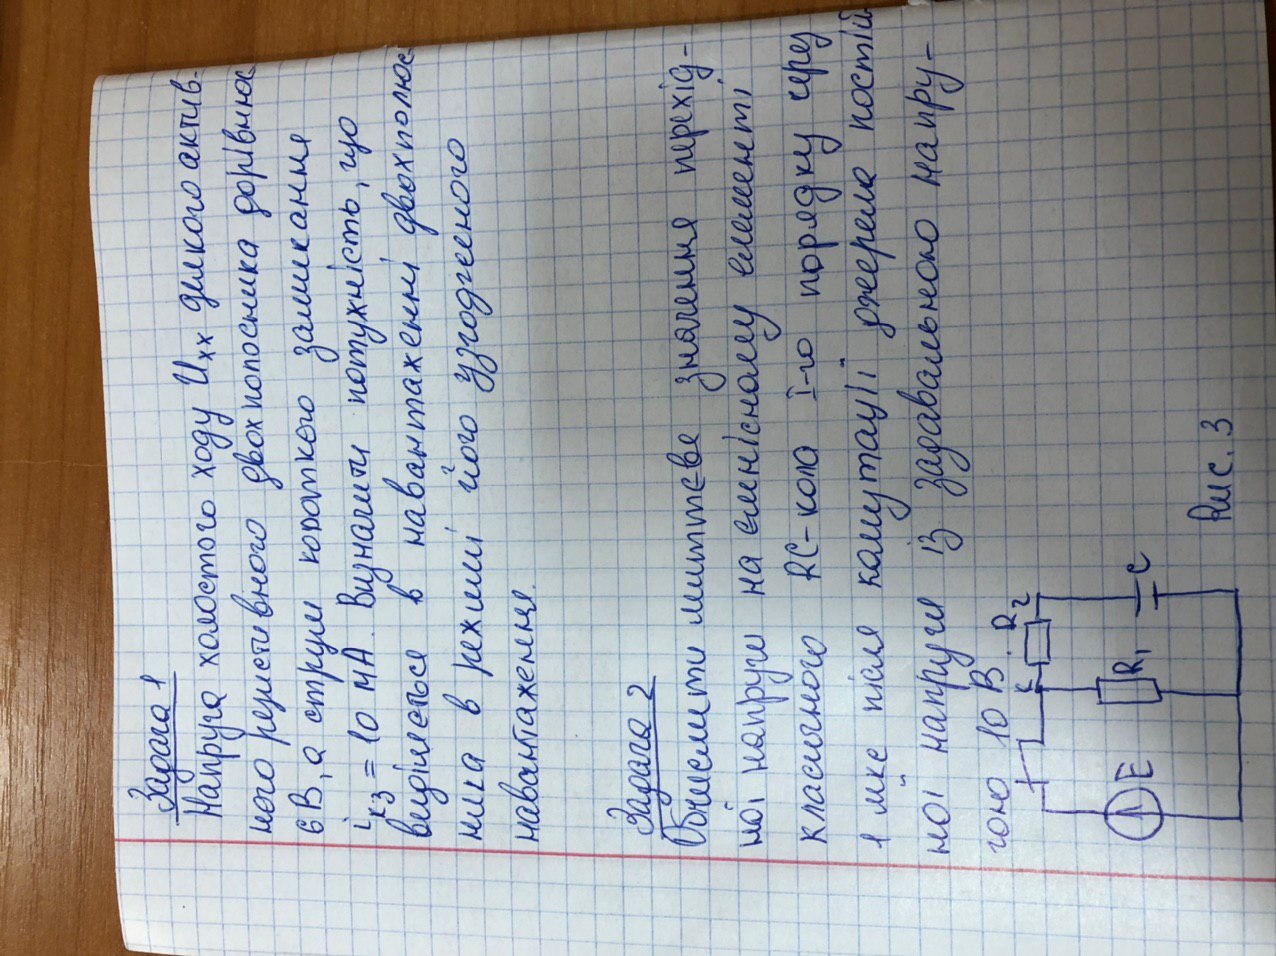 Задача 1
Напруга холостого ходу Uхх деякого актив-
ного резистивного двохполюсника дорівнює
6 В, а струм короткого замикання
iкз = 10 мА. Визначити потужність, що
виділяється в навантаженні двохполюс-
ника в режимі його узгодженого
навантаження.
Задача 2
Обчислити миттєве значення перехід-
ної напруги на ємнісному елементі
класичного RC-кола I-го порядку через
1 мкс після комутації джерела постій-
ної напруги із задавальною напру-
гою 10 В.
К
R2
E
R1
C
Рис. 3